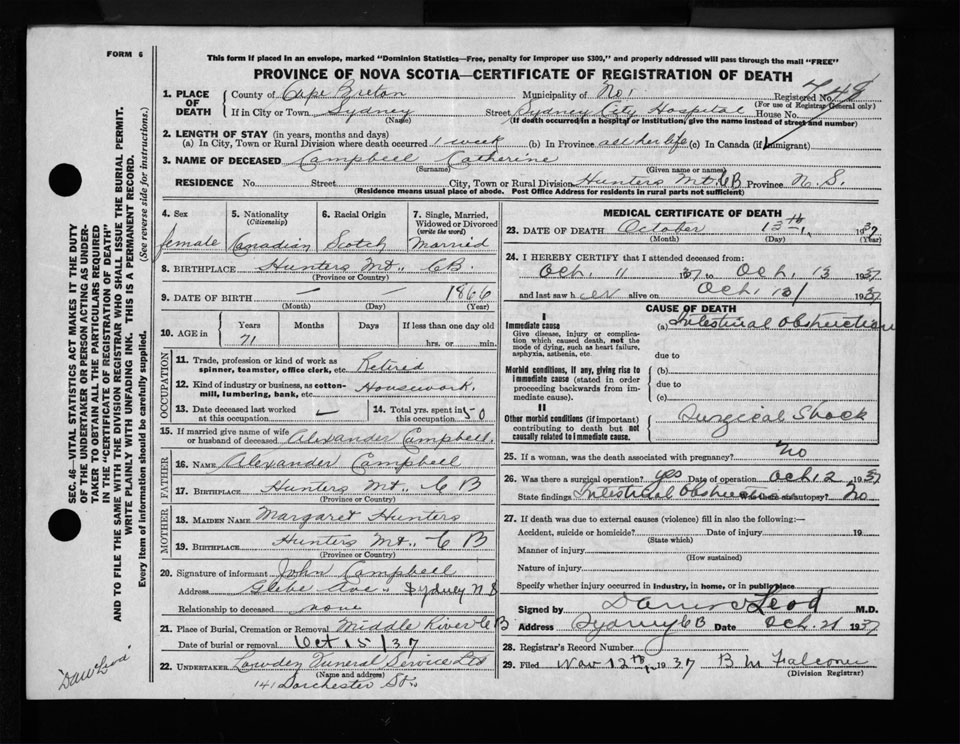 FORM 6
This form if placed in an envelope, marked "Dominion Statistics—Free, penalty for improper use $300," and properly addressed will pass through the mail "FREE"
PROVINCE OF NOVA SCOTIA—CERTIFICATE OF REGISTRATION OF DEATH
1. PLACE OF DEATH
County of Cape Breton Municipality of No 1 Registered No. 748
(For use of Registrar General only)
If in City or Town Sydney Street Sydney City Hospital House No.
(Name) (If death occurred in a hospital or institution, give the name instead of street and number)
2. LENGTH OF STAY (in years, months and days)
(a) In City, Town or Rural Division where death occurred 1 week (b) In Province all her life (c) In Canada (if immigrant)
3. NAME OF DECEASED Campbell Catherine
(Surname) (Given name or names)
RESIDENCE No. Street City, Town or Rural Division Hunters Mt. CB Province N.S.
(Residence means usual place of abode. Post Office Address for residents in rural parts not sufficient)
4. Sex 5. Nationality (Citizenship) 6. Racial Origin 7. Single, Married, Widowed or Divorced (write the word)
female Canadian Scotch Married
8. BIRTHPLACE Hunters Mt., CB.
(Province or Country)
9. DATE OF BIRTH — — 1866
(Month) (Day) (Year)
10. AGE in Years Months Days If less than one day old
71 hrs. or min.
OCCUPATION
11. Trade, profession or kind of work as spinner, teamster, office clerk, etc. Retired
12. Kind of industry or business, as cotton-mill, lumbering, bank, etc. Housework.
13. Date deceased last worked at this occupation — 14. Total yrs. spent in this occupation 50
15. If married give name of wife or husband of deceased Alexander Campbell.
FATHER
16. NAME Alexander Campbell
17. BIRTHPLACE Hunters Mt., C B
(Province or Country)
MOTHER
18. MAIDEN NAME Margaret Hunters
19. BIRTHPLACE Hunters Mt., C B
(Province or Country)
20. Signature of informant John Campbell
Address Glebe Ave., Sydney N S
Relationship to deceased none
21. Place of Burial, Cremation or Removal Middle River C B
Date of burial or removal Oct 15/37
22. UNDERTAKER Lowden Funeral Service Ltd
(Name and address)
141 Dorchester St.
MEDICAL CERTIFICATE OF DEATH
23. DATE OF DEATH October 13th 1937
(Month) (Day) (Year)
24. I HEREBY CERTIFY that I attended deceased from:
Oct. 11 37 to Oct. 13 1937
and last saw her alive on Oct. 13/ 1937
CAUSE OF DEATH
I
Immediate cause (a) Intestinal Obstruction
Give disease, injury or complication which caused death, not the mode of dying, such as heart failure, asphyxia, asthenia, etc.
due to
Morbid conditions, if any, giving rise to immediate cause (stated in order proceeding backwards from immediate cause).
(b)
due to
(c)
II
Other morbid conditions (if important) contributing to death but not causally related to immediate cause.
Surgical Shock
25. If a woman, was the death associated with pregnancy? No
26. Was there a surgical operation? yes Date of operation Oct 12 1937
State findings Intestinal Obstruction Was there an autopsy? No
27. If death was due to external causes (violence) fill in also the following:—
Accident, suicide or homicide? Date of injury 19
(State which)
Manner of injury
(How sustained)
Nature of injury
Specify whether injury occurred in industry, in home, or in public place
Signed by M.D.
Address Sydney C B Date Oct. 21 1937
28. Registrar's Record Number
29. Filed Nov 12th 1937 B M Falconer
(Division Registrar)
SEC. 46—VITAL STATISTICS ACT MAKES IT THE DUTY
OF THE UNDERTAKER OR PERSON ACTING AS UNDER-
TAKER TO OBTAIN ALL THE PARTICULARS REQUIRED
IN THE "CERTIFICATE OF REGISTRATION OF DEATH"
AND TO FILE THE SAME WITH THE DIVISION REGISTRAR WHO SHALL ISSUE THE BURIAL PERMIT.
WRITE PLAINLY WITH UNFADING INK. THIS IS A PERMANENT RECORD.
Every item of information should be carefully supplied. (See reverse side for instructions.)